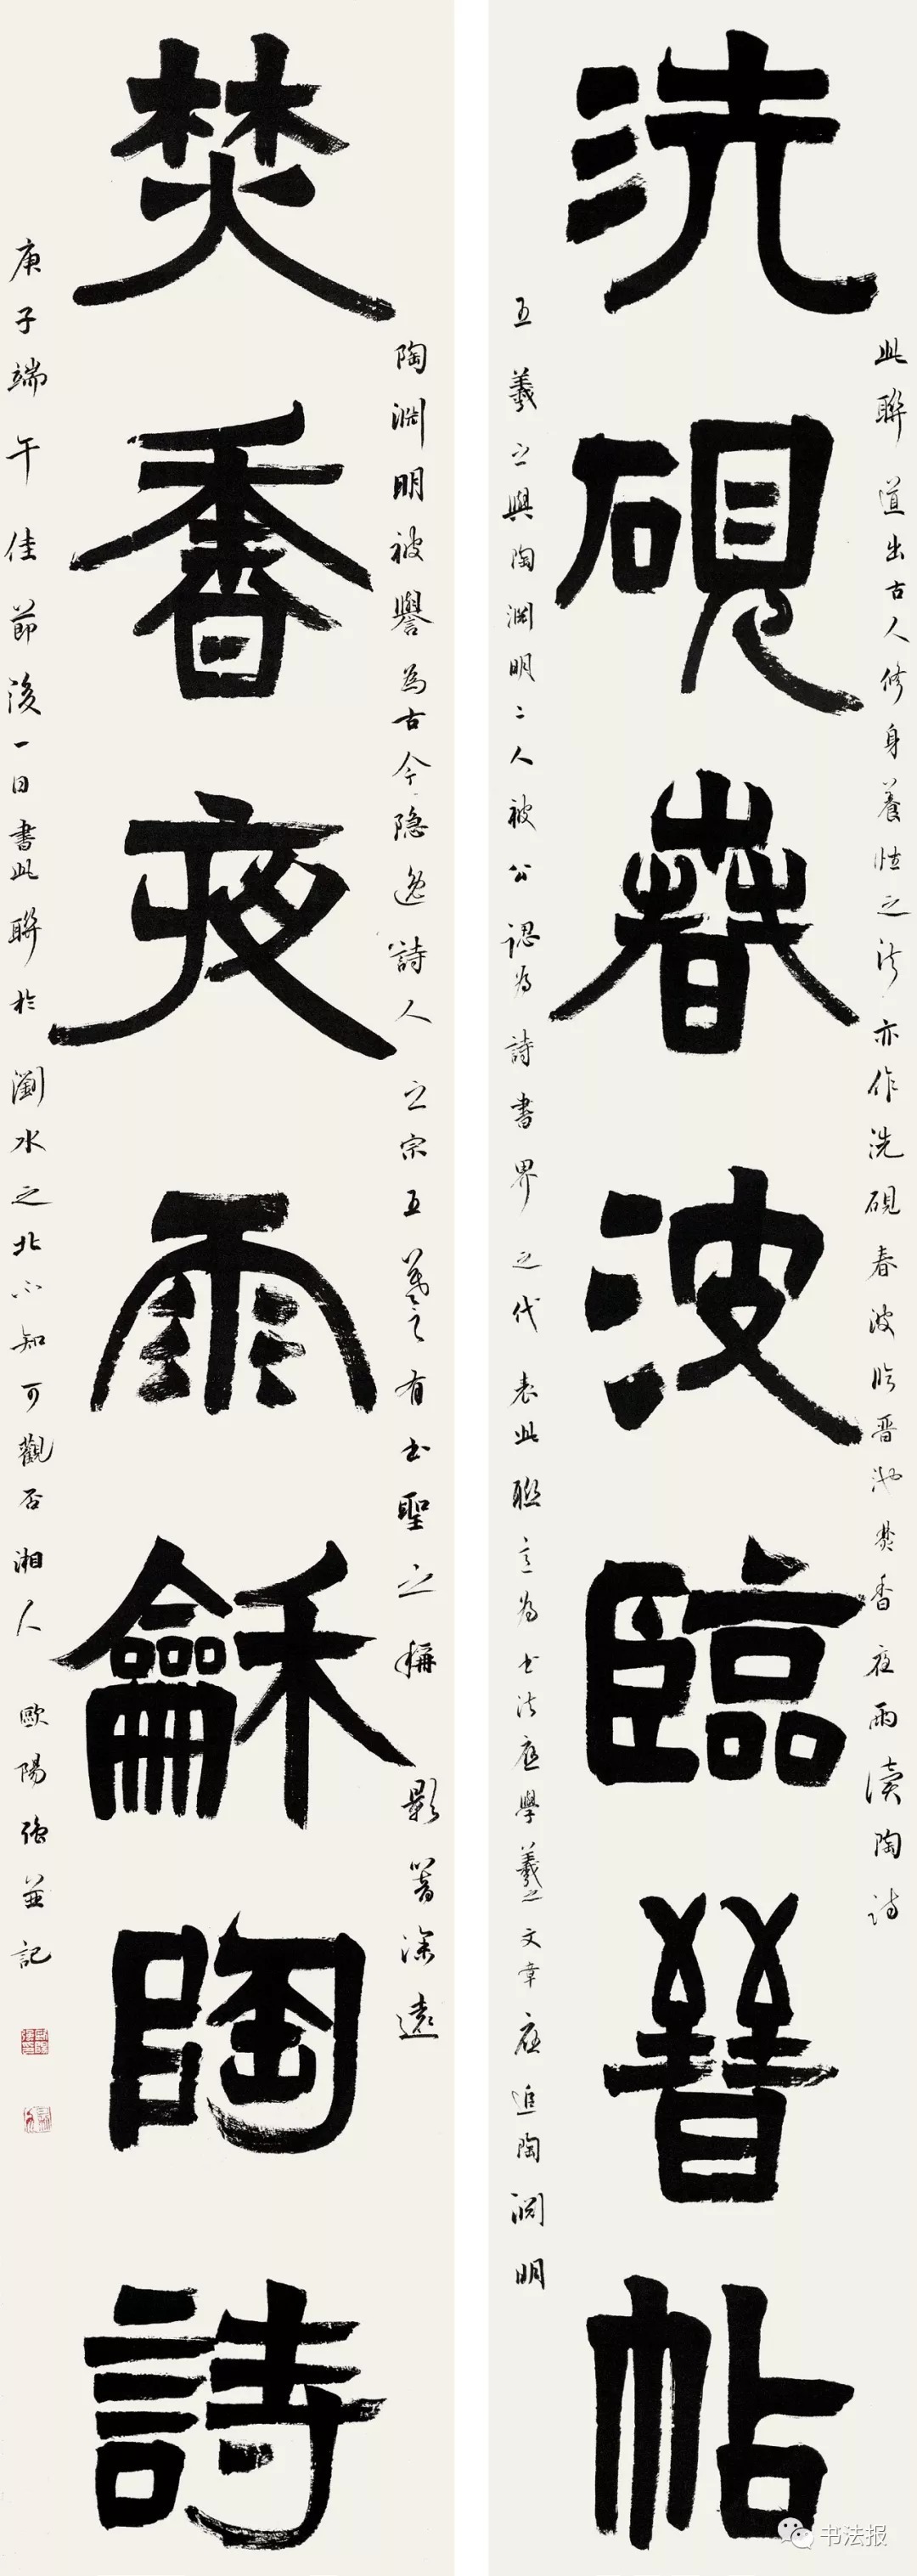 洗硯萅波臨晉帖
此聯道出古人修身養性之法亦作洗硯春波臨晋池焚香夜雨讀陶詩
王羲之與陶淵明二人被公認為詩書界之代表此聯意為书法應學羲之文章應追陶淵明
焚香夜雨龢陶詩
陶淵明被譽為古今隐逸詩人之宗王羲之有书聖之稱影箸深遠
庚子端午佳節後一日書此聯於瀏水之北不知可觀否湘人歐陽強並記
书法报